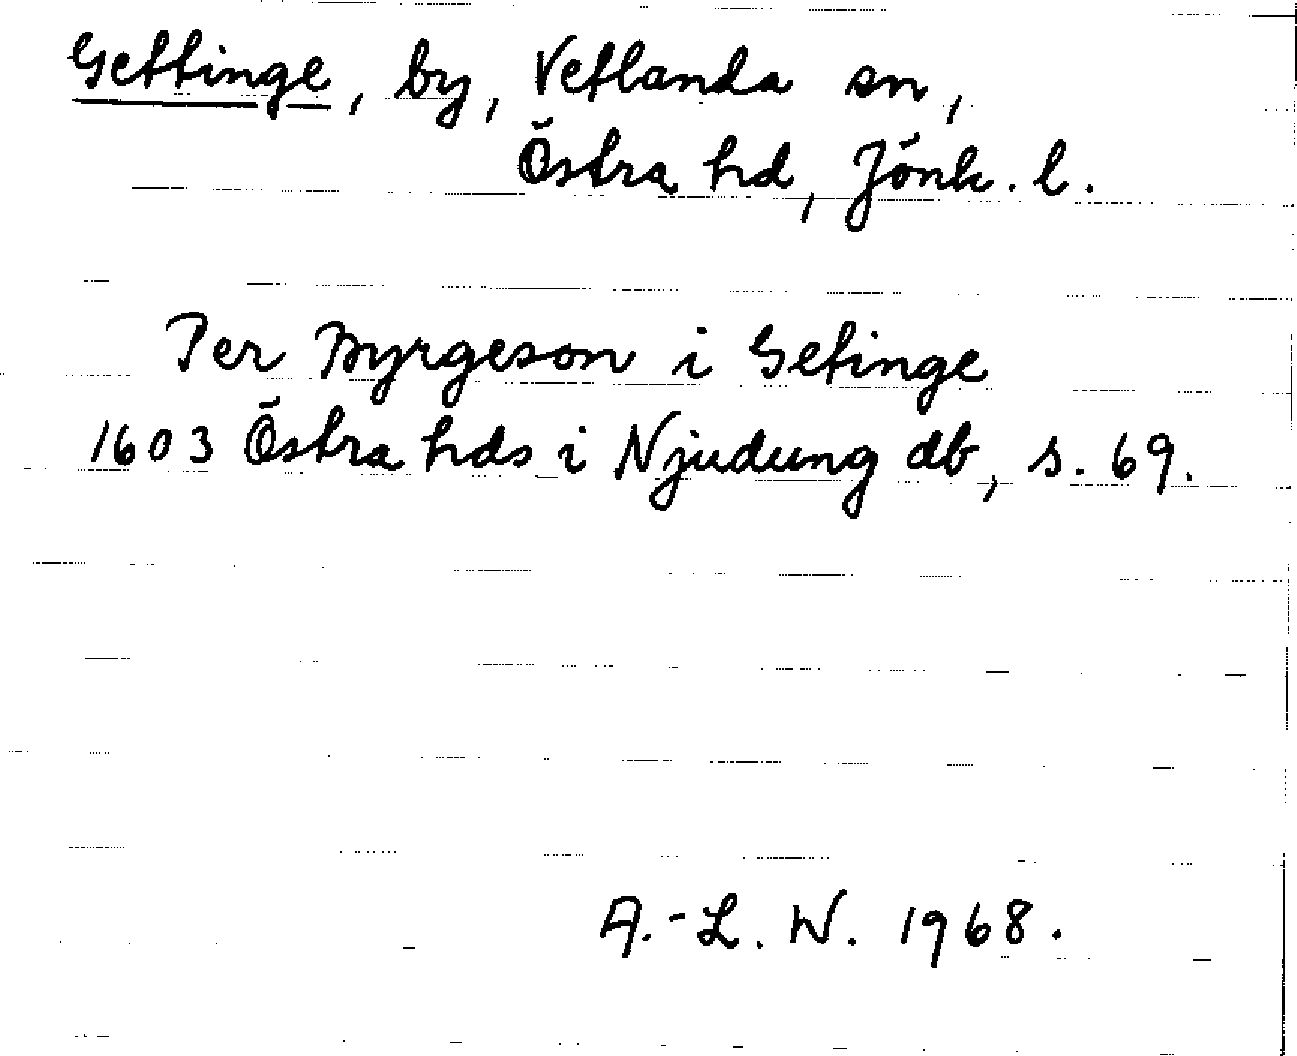 Gettinge, by, Vetlanda sn,
Östra hd, Jönk. l.
Per Byrgeson i Getinge
1603 Östra hds i Njudung db, s. 69.
A.-L. W. 1968.